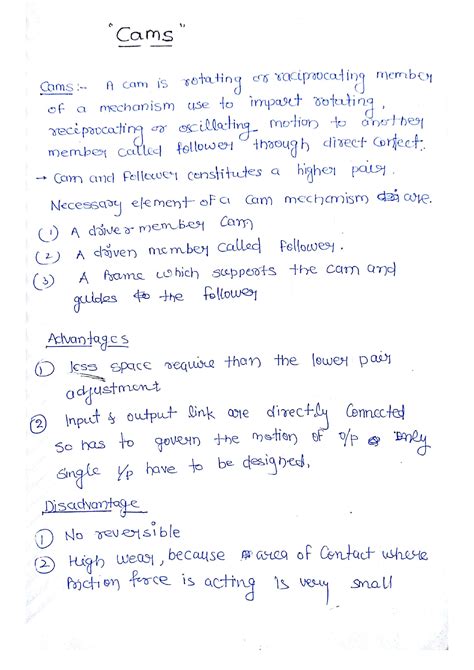 "Cams"
Cams:- A cam is rotating or raciprocating member
of a mechanism use to impart rotating,
reciprocating or oscillating motion to another
member called follower through direct contect.
→ Cam and Follower constitutes a higher pair.
Necessary element of a Cam mechanism are.
(1) A driver member Cam
(2) A driven member called Follower.
(3) A frame which supports the cam and
guides to the follower
Advantages
① less space require than the lower pair
adjustment
② Input & output link are directly Connected
So has to govern the motion of o/p only
single i/p have to be designed.
Disadvantage
① No reversible
② High wear, because area of Contact where
friction force is acting is very small